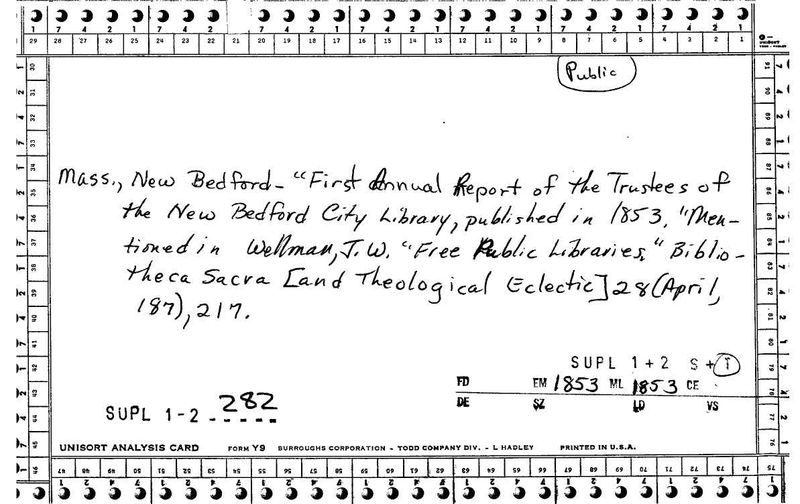 Public
Mass., New Bedford - "First Annual Report of the Trustees of
the New Bedford City Library, published in 1853, "Men-
tioned in Wellman, J. W. "Free Public Libraries," Biblio-
theca Sacra [and Theological Eclectic] 28 (April,
187), 217.
SUPL 1+2 S+1
FD EM 1853 ML 1853 CE
DE SZ LD VS
SUPL 1-2-282
UNISORT ANALYSIS CARD FORM Y9 BURROUGHS CORPORATION - TODD COMPANY DIV. - L HADLEY PRINTED IN U.S.A.